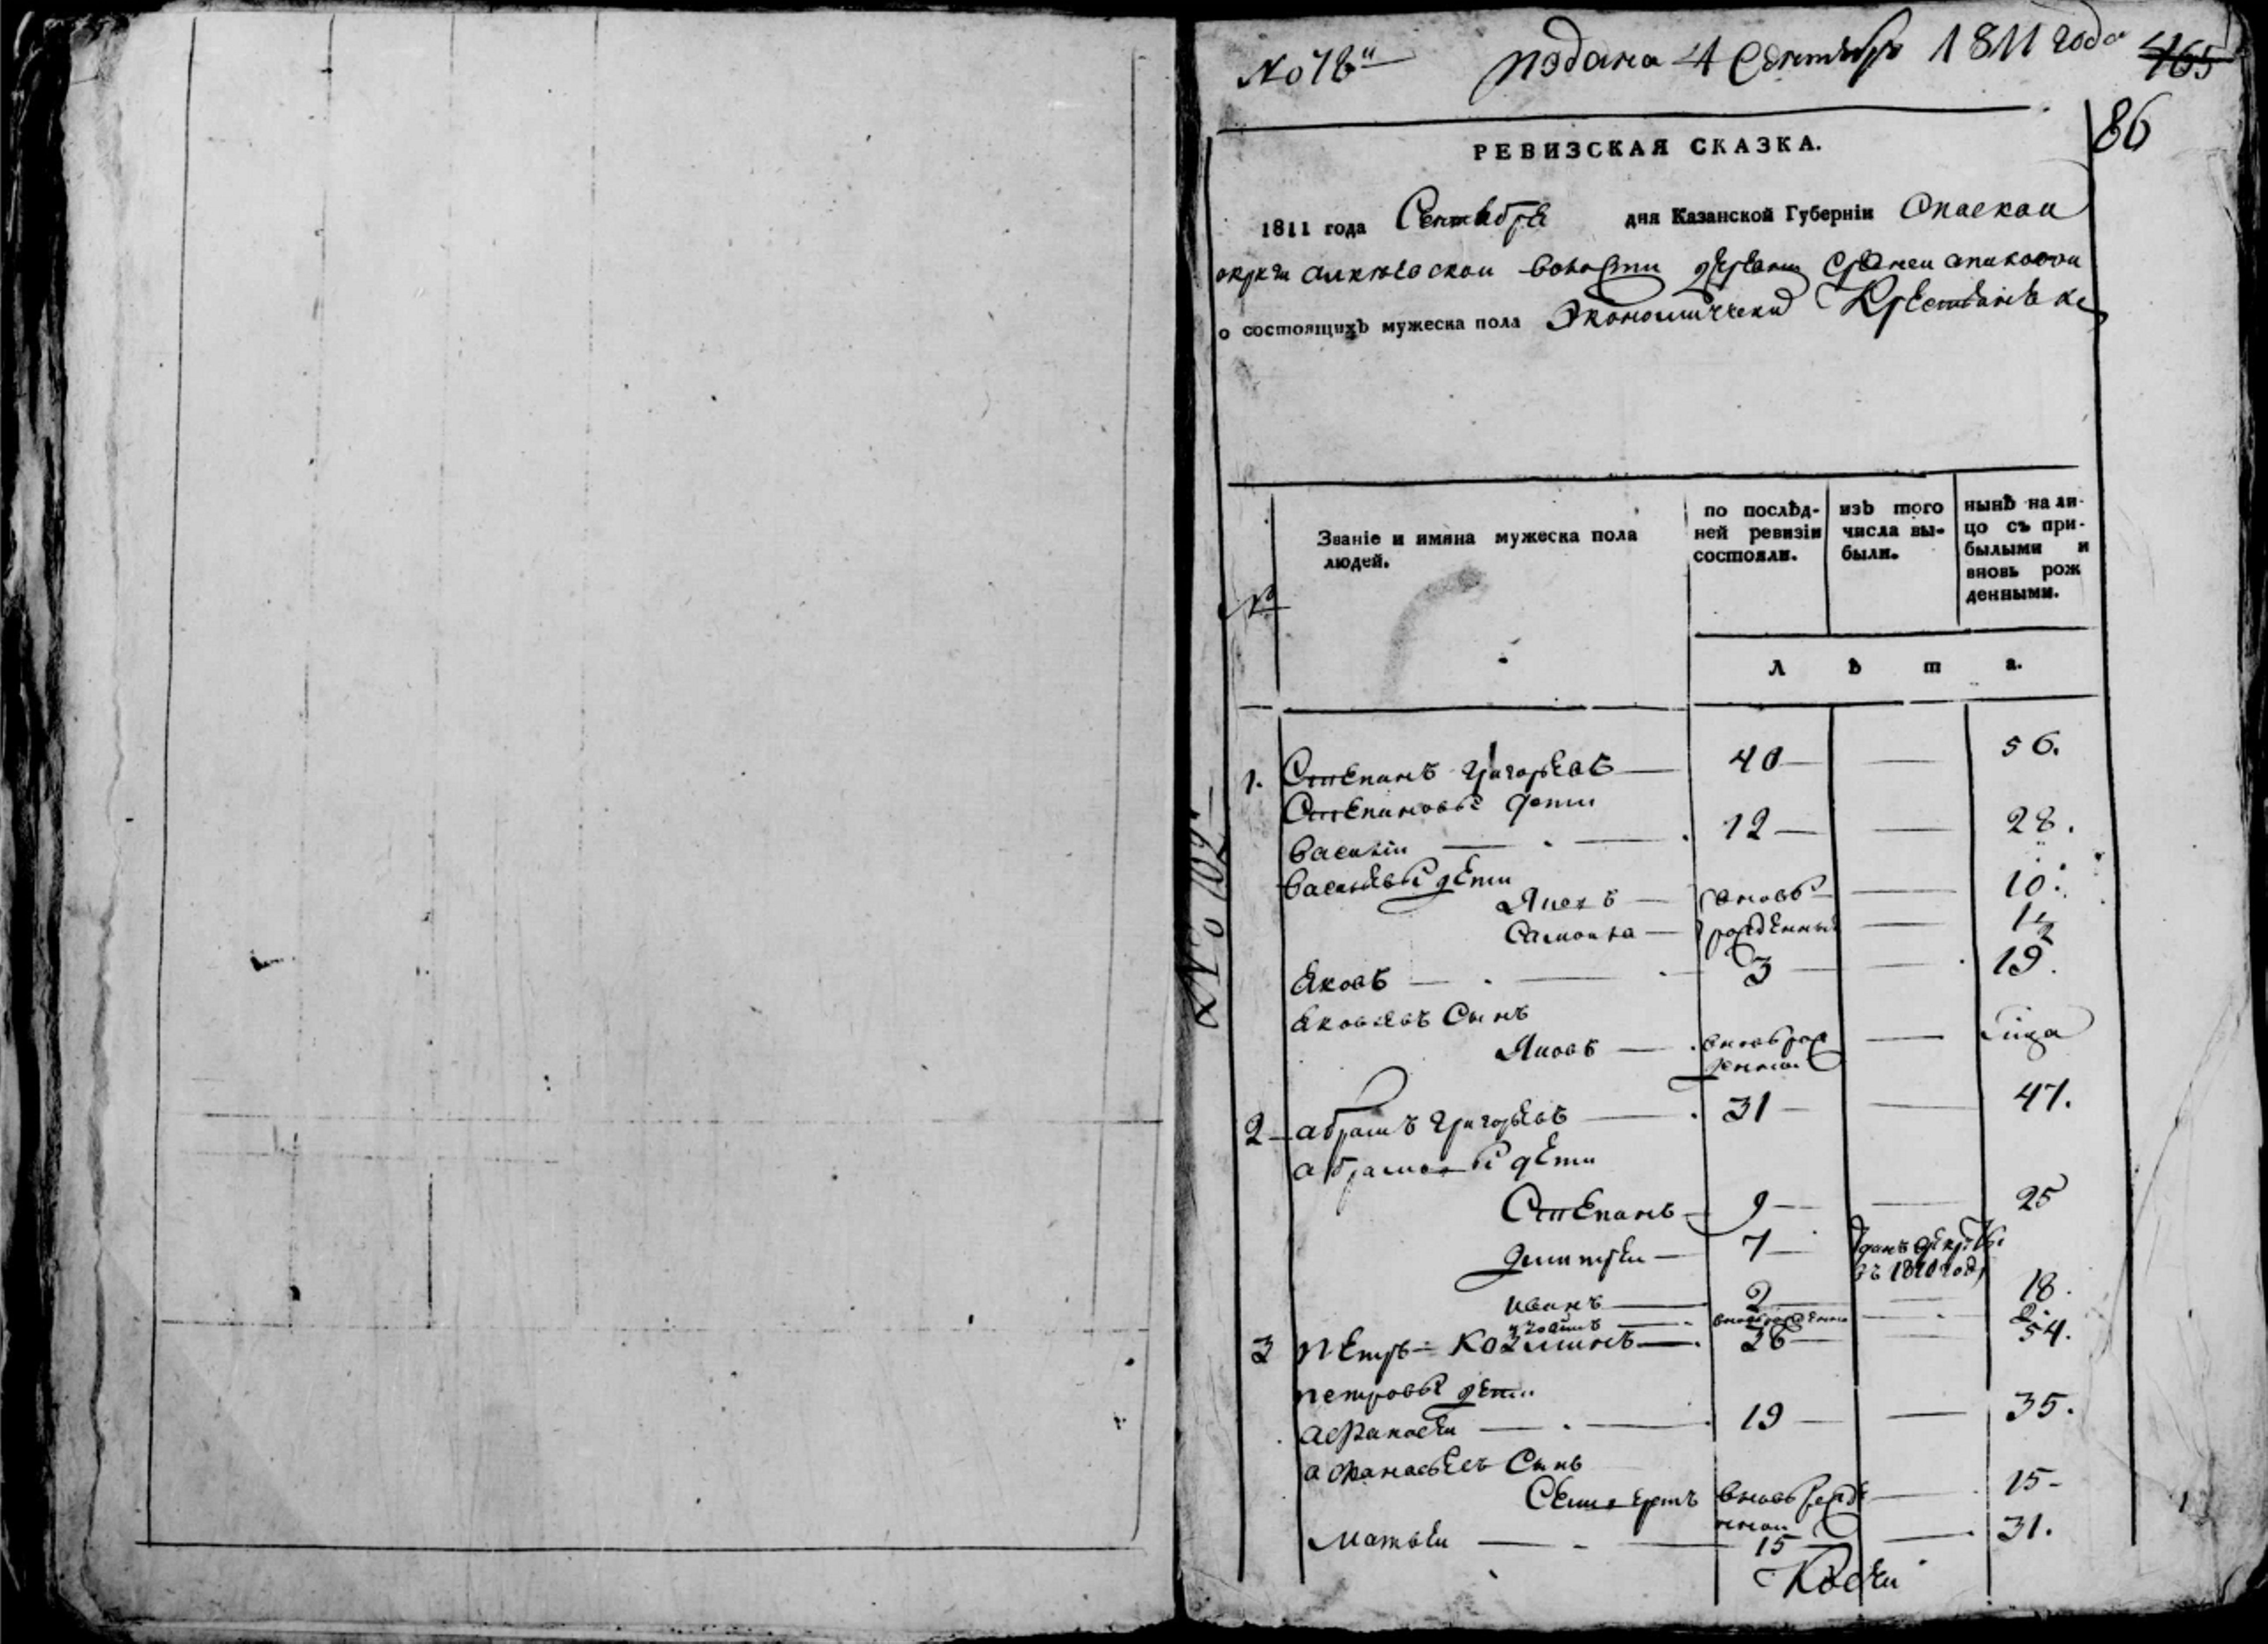 № 78
подана 4 Сентября 1811 года
165
86
РЕВИЗСКАЯ СКАЗКА.
1811 года Сентября дня Казанской Губернiи Спаской
округи алкеевской волости деревни
о состоящихъ мужеска пола Экономически
№
Званiе и имяна мужеска пола людей.
по послѣд-
ней ревизiи
состояли.
изъ того
числа вы-
были.
нынѣ на ли-
цо съ при-
былыми и
вновь рож
денными.
Л ѣ т а.
1. Степанъ григорьевъ 40 56.
Степановы дети
василiи 12 28.
васильевы дети
вновь 10.
Самоила рожденныя 1/2
яковъ 3 19.
яковлевъ Сынъ
вновь рож
денной
2 абрамъ григорьевъ 31 47.
абрамовы дети
Степанъ 9 25
дмитреи 7
въ 1810 году
иванъ 2 18.
вновь рожденно 2.
3 петръ Козминъ 54.
петровы дети
афанасеи 19 35.
афанасьевъ Сынъ
вновь рожде 15
нной
матвеи 15 31.
№ 702